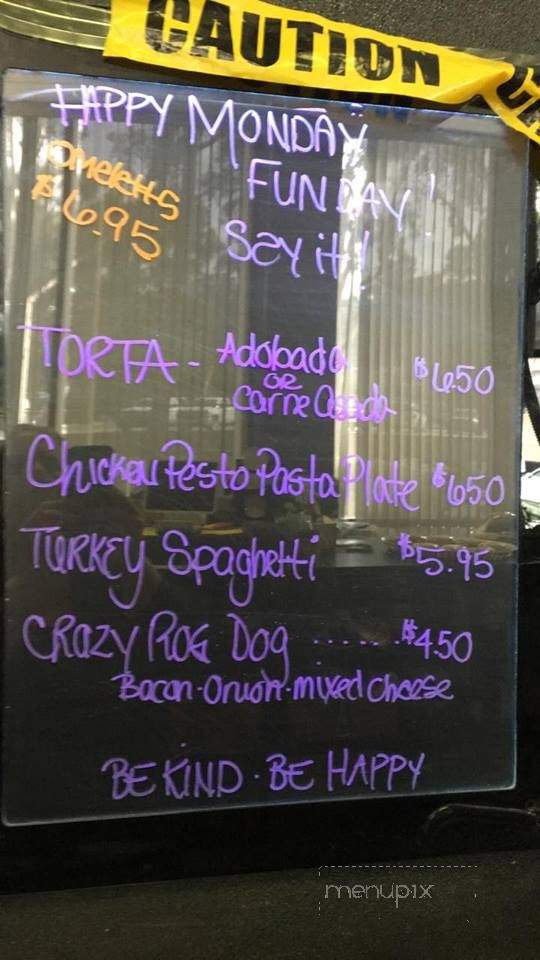 CAUTION
HAPPY MONDAY
FUNDAY!
Say it!
omeletts
$6.95
TORTA - Adobada $6.50
OR
Carne Asada
Chicken Pesto Pasta Plate $6.50
TURKEY Spaghetti $5.95
CRAZY ROE DOg ...... $4.50
Bacon·Onion·mixed cheese
BE KIND · BE HAPPY
menupix